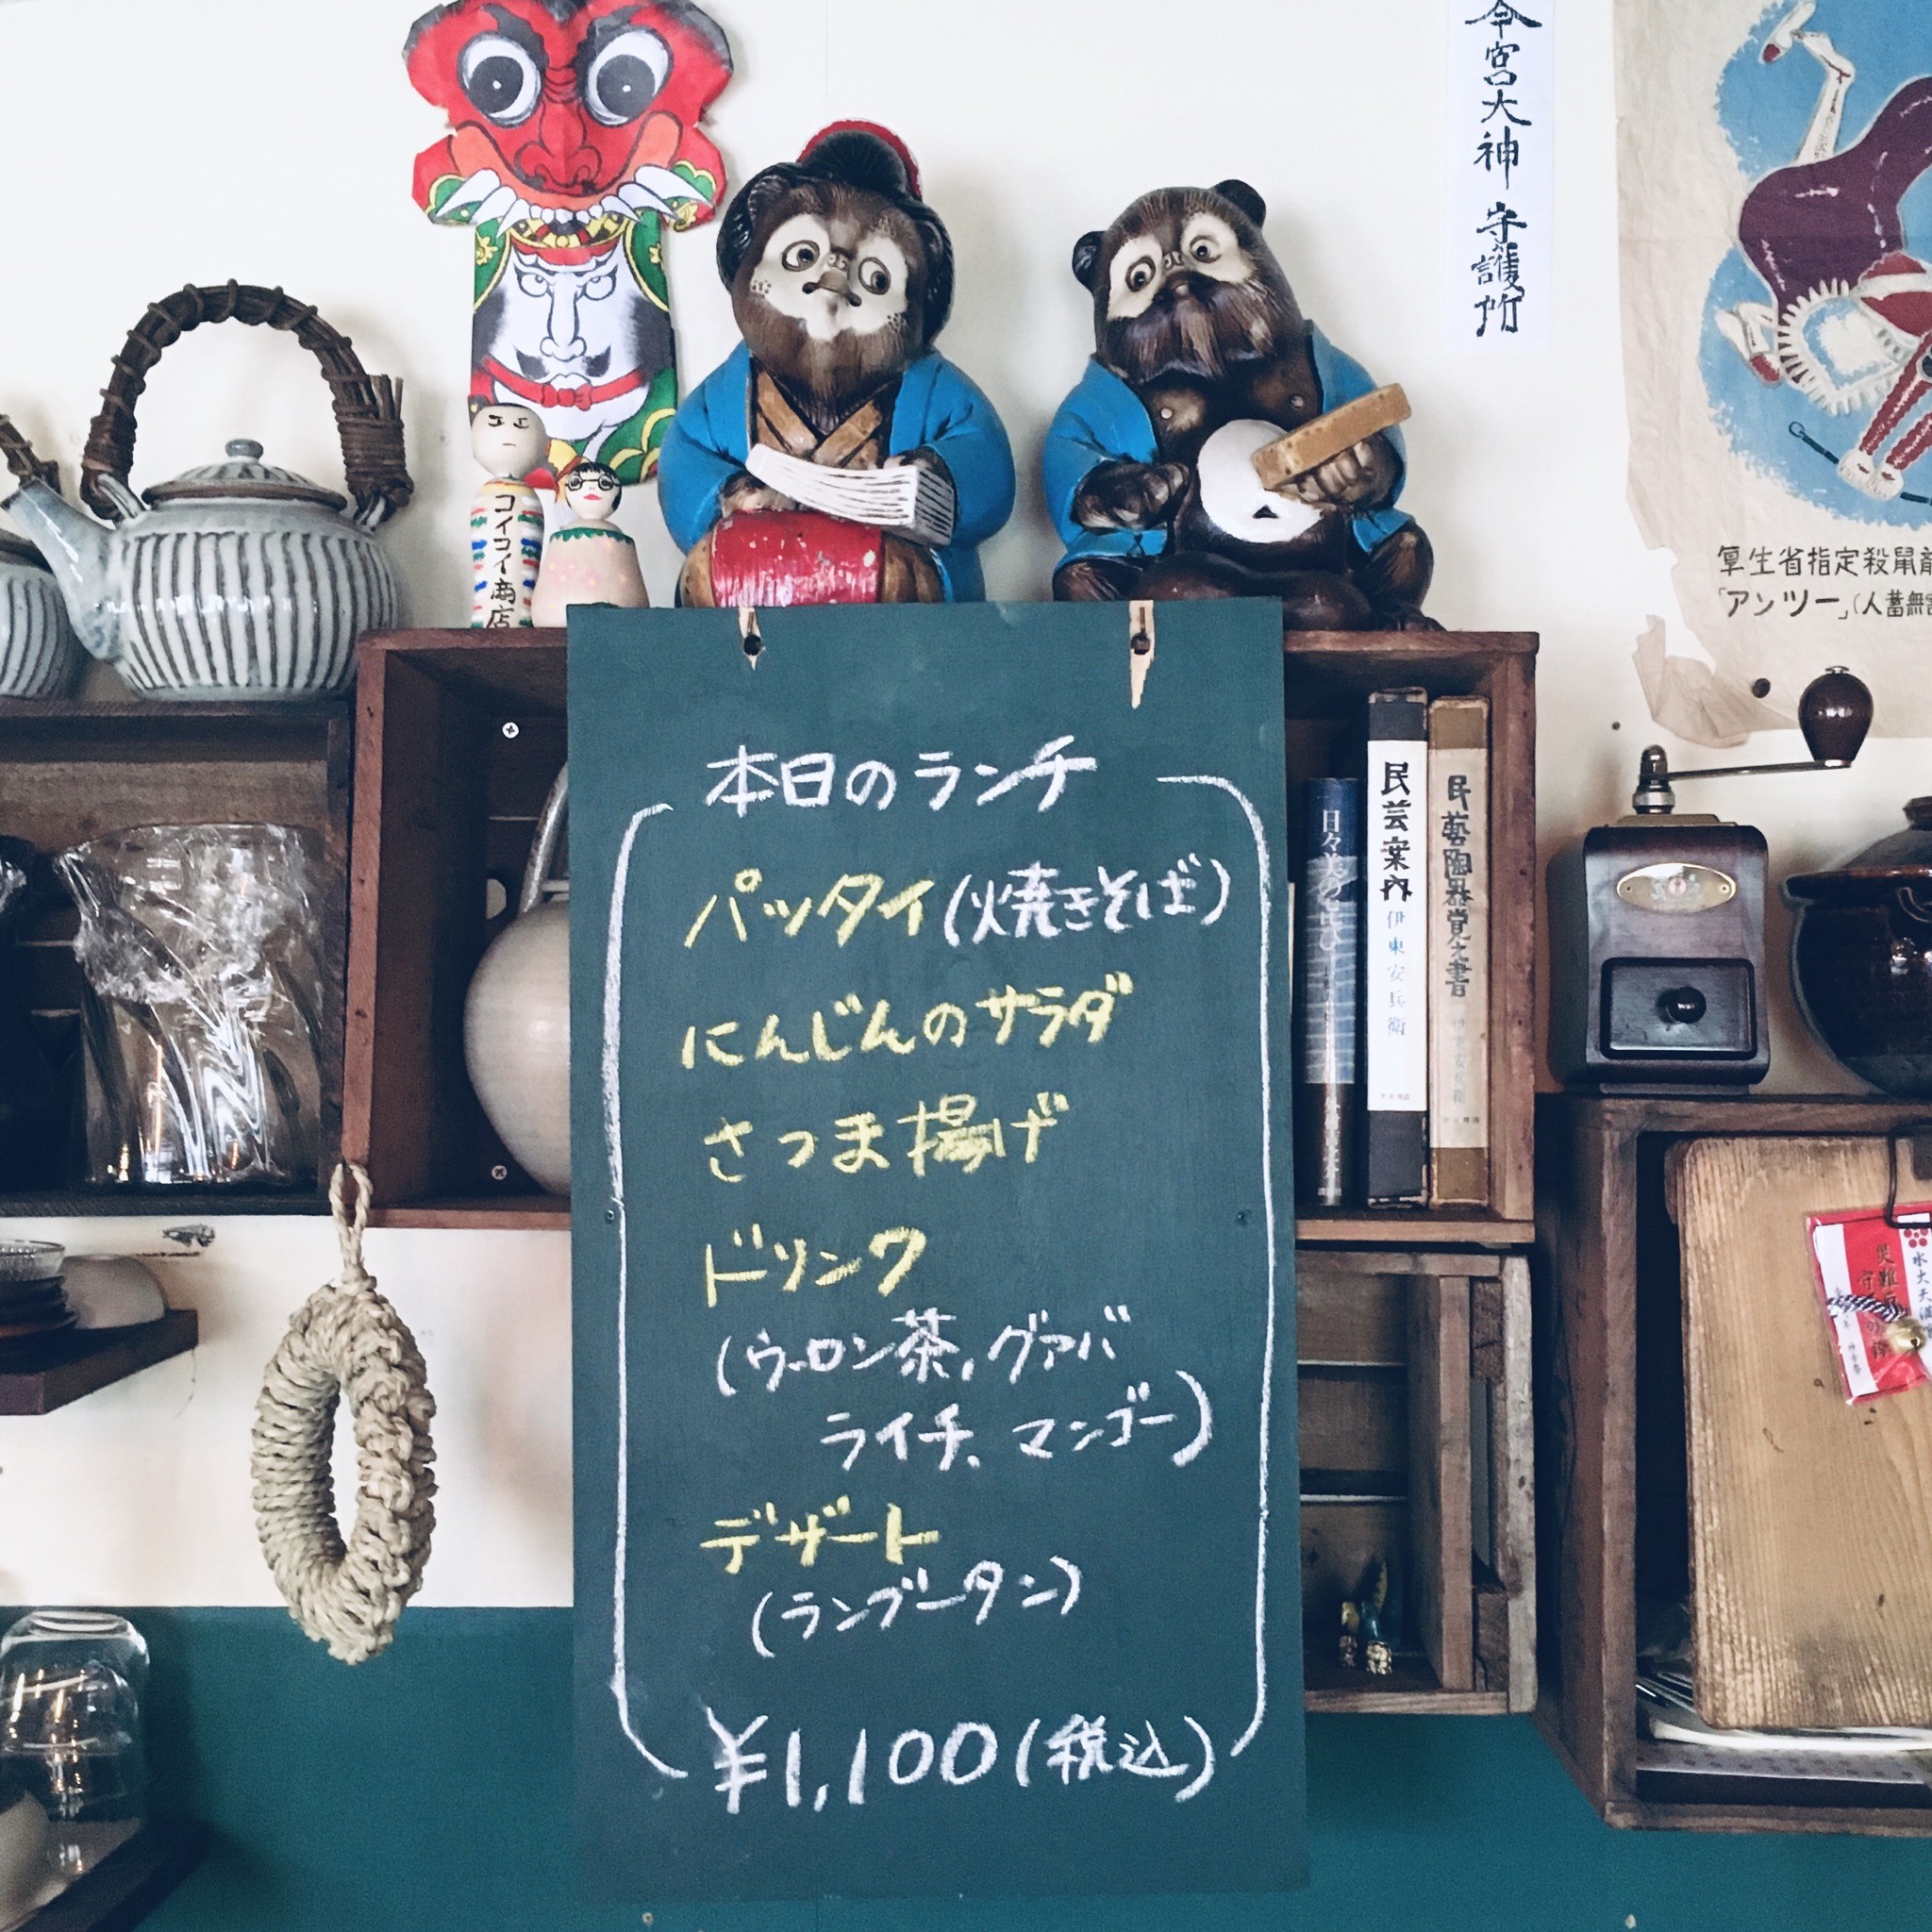 今宮大神 守護所
厚生省指定殺鼠剤
「アンツー」(人蓄無害
コイコイ商店
本日のランチ
パッタイ(焼きそば)
にんじんのサラダ
さつま揚げ
ドリンク
(ウーロン茶,グァバ
ライチ、マンゴー)
デザート
(ランブータン)
¥1,100(税込)
民芸案内 伊東安兵衛
民藝陶器覚え書